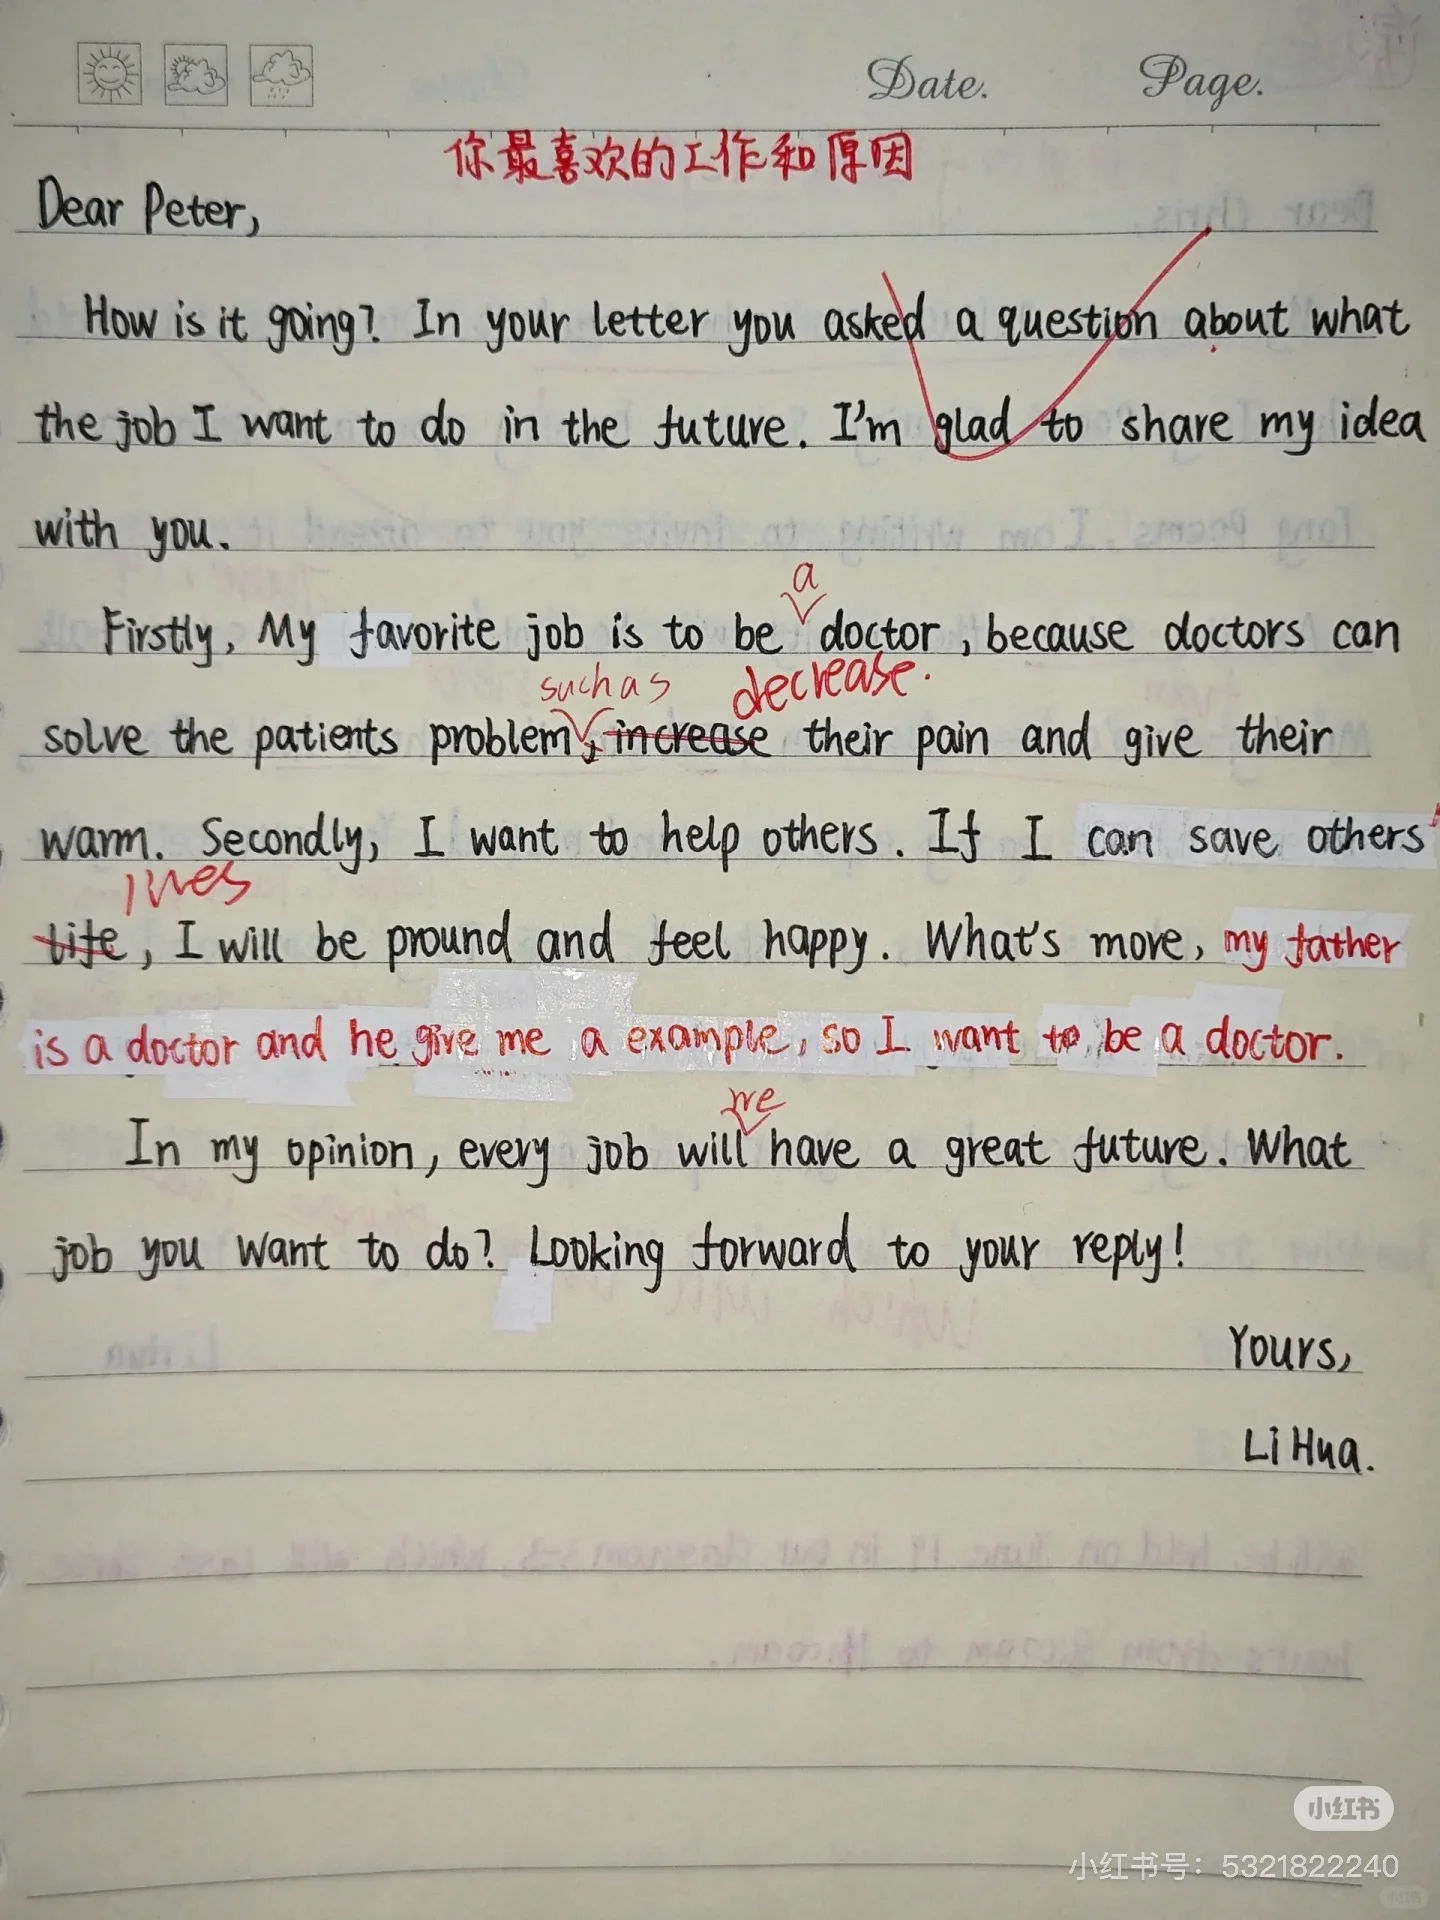 Date. Page.
你最喜欢的工作和原因
Dear Peter,
How is it going? In your letter you asked a question about what
the job I want to do in the future. I'm glad to share my idea
with you.
a
Firstly, My favorite job is to be doctor, because doctors can
such as decrease.
solve the patients problem, increase their pain and give their
warm. Secondly, I want to help others. If I can save others'
lives
life, I will be pround and feel happy. What's more, my father
is a doctor and he give me a example, so I want to be a doctor.
we
In my opinion, every job will have a great future. What
job you want to do? Looking forward to your reply!
Yours,
Li Hua.
小红书
小红书号：5321822240
小红书